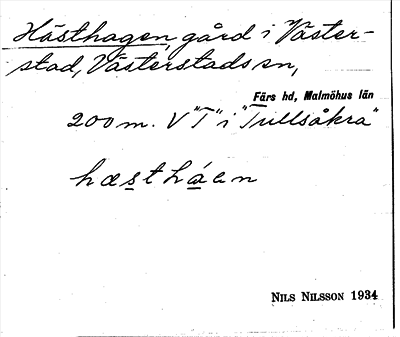 Hästhagen, gård i Väster-
stad, Västerstads sn,
Färs hd, Malmöhus län
200 m. V "T" i "Trullsåkra"
hæsthágen
NILS NILSSON 1934